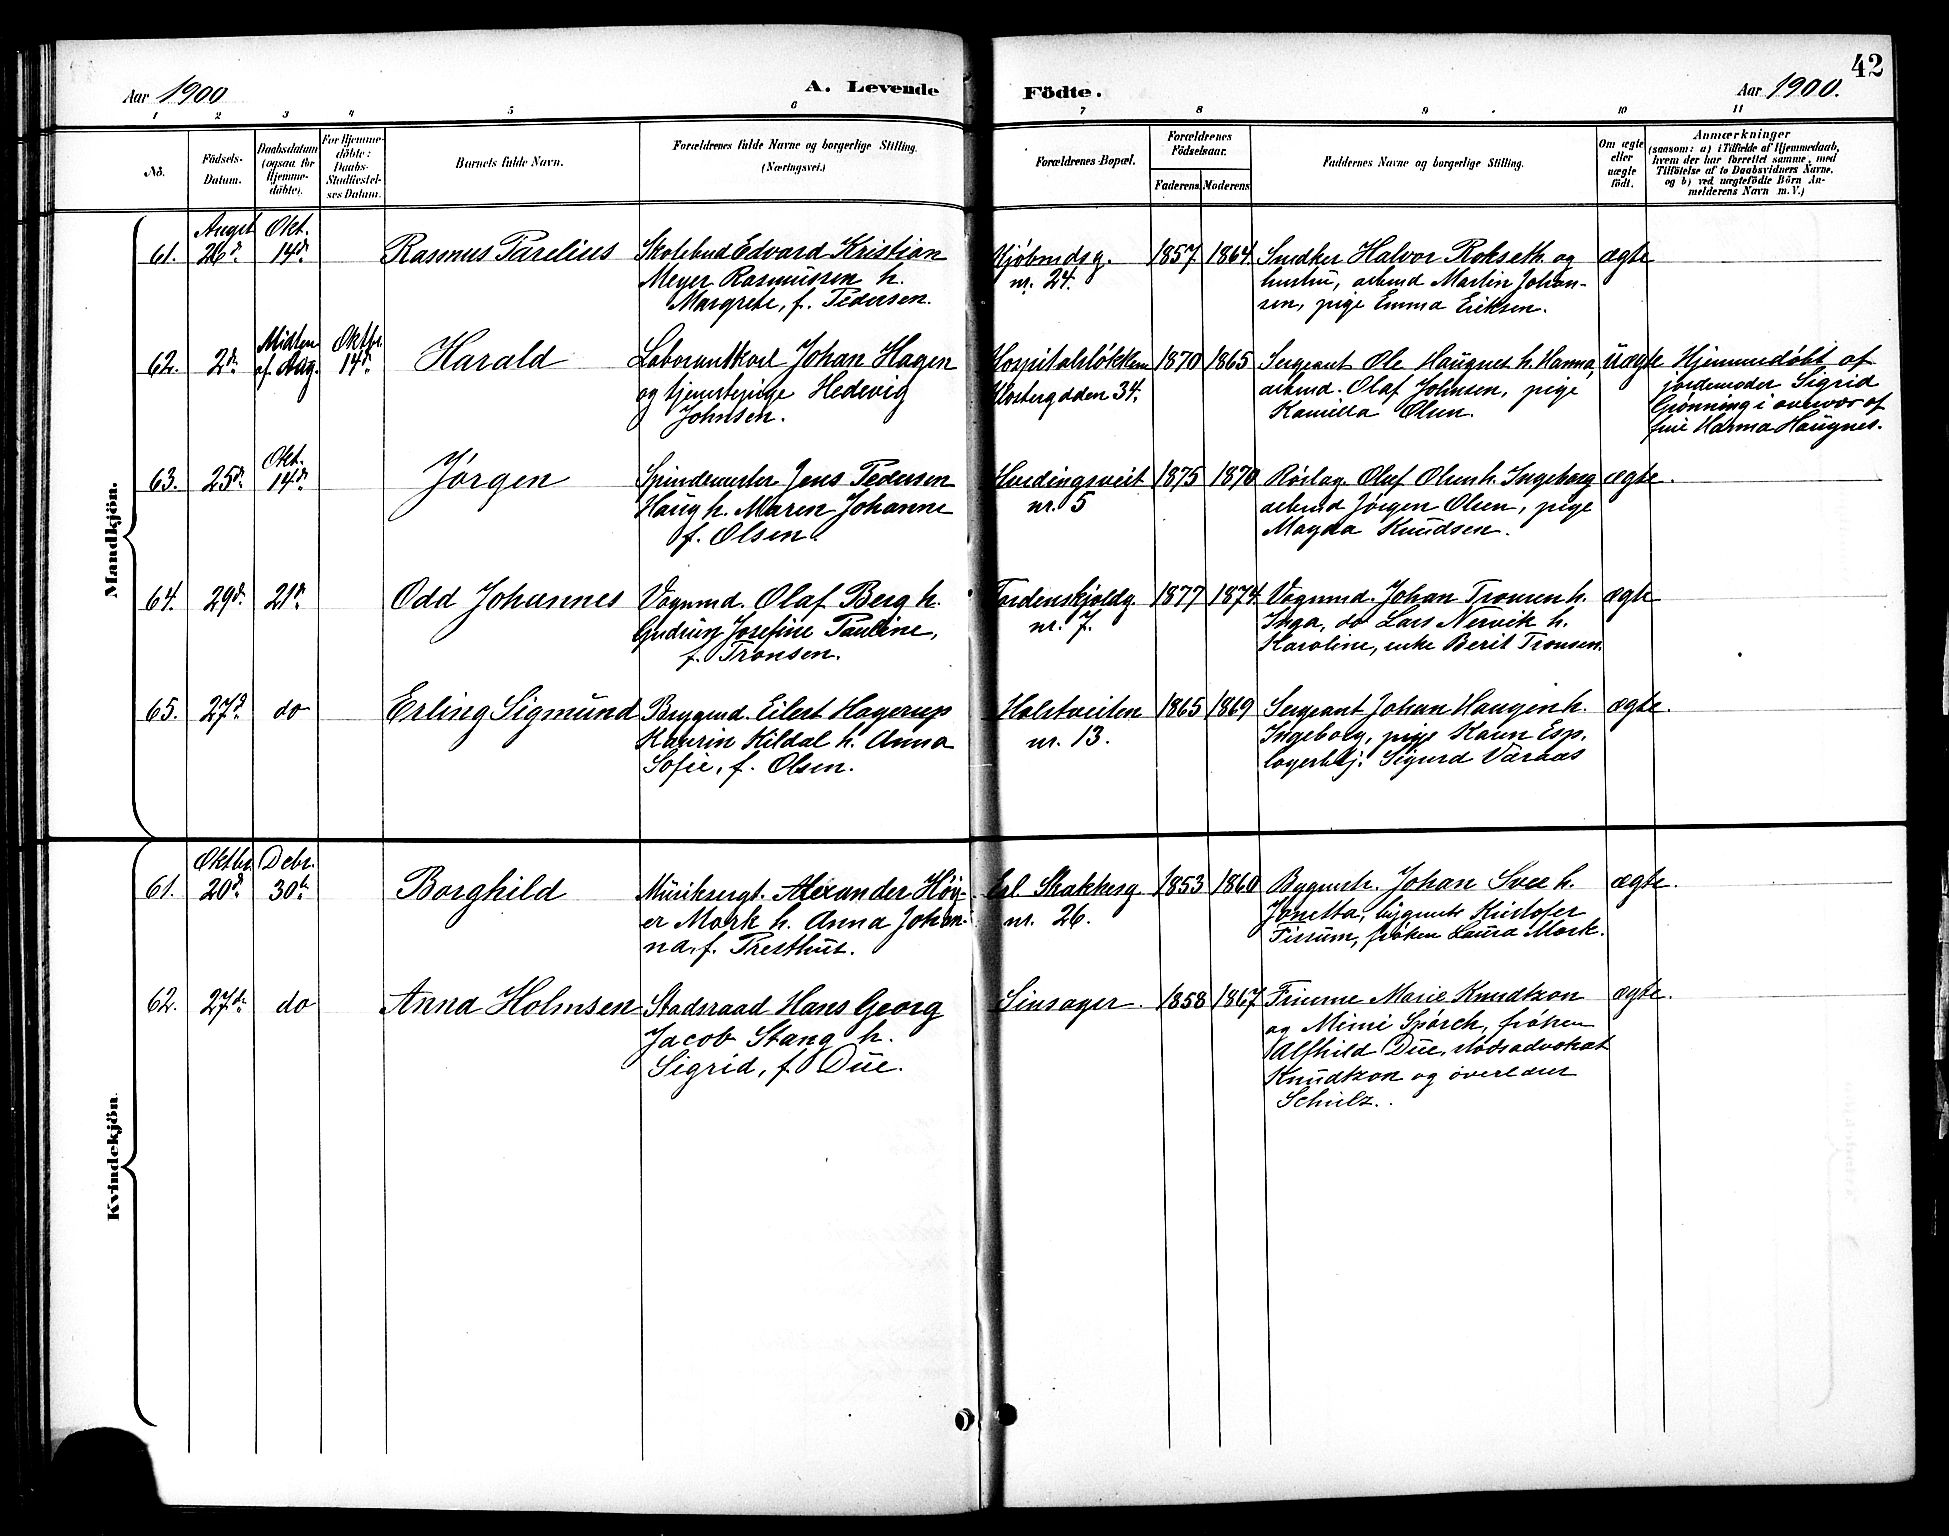 42
Aar 1900
A. Levende Födte.
Aar 1900.
1 2 3 4 5 6 7 8 9 10 11
No.
Födsels-
Datum.
Daabsdatum
(ogsaa for
Hjemme-
döbte).
For Hjemme-
döbte:
Daabs-
Stadfæstel-
ses Datum.
Barnets fulde Navn.
Forældrenes fulde Navne og borgerlige Stilling.
(Næringsvei.)
Forældrenes Bopæl.
Forældrenes
Födselsaar.
Faderens Moderens
Faddernes Navne og borgerlige Stilling.
Om ægte
eller
uægte
födt.
Anmærkninger
(saasom: a) i Tilfælde af Hjemmedaab,
hvem der har forrettet samme, med
Tilföielse af to Daabsvidners Navne,
og b) ved uægtefödte Börn An-
melderens Navn m. V.)
Mandkjön.
61.
Augst
26de
Okt.
14de
Rasmus Parelius
Skolebud Edvard Kristian
Meyer Rasmussen h.
Margrete, f. Pedersen.
Kjøbmdsg.
nr. 24.
1857 1864
Snedker Halvor Rokseth og
hustru, arbmd Martin Johan-
sen, pige Emma Eriksen.
ægte
62.
2de
Midten
af Aug.
Oktbr.
14de
Harald
Laborantkorl Johan Hagen
og tjenestepige Hedevig
Johnsen.
Hospitalsløkken
Klostergaden 34.
1870 1865
Sergeant Ole Haugnes h. Hanna,
arbmd. Olaf Johnsen, pige
Kamilla Olsen.
uægte
Hjemmedøbt af
jordemoder Sigrid
Grønning i overvær af
frue Hanna Haugnes.
63.
25de
Okt.
14de
Jørgen
Spindemester Jens Pedersen
Haug h. Maren Johanne
f. Olsen.
Hardingsveit
nr. 5
1875 1870
Rørlæg. Oluf Olsen h. Ingeborg
arbmd Jørgen Olsen, pige
Magda Knudsen.
ægte.
64.
29de
21de
Odd Johannes
Vognmd. Olaf Berg h.
Gudrun Josefine Pauline,
f. Tronsen.
Tordenskjoldg.
nr. 7.
1877 1874
Vognmd. Johan Tronsen h.
Inga, do Lars Nervik h.
Karoline, enke Berit Tronsen.
ægte
65.
27de
do
Erling Sigmund
Brygmd. Eilert Hagerup
Kaurin Kildal h. Anna
Sofie, f. Olsen.
Holstveiten
nr. 13.
1865 1869
Sergeant Johan Haugen h.
Ingeborg, pige Karen Esp,
lagerbtj. Sigurd Varaas
ægte.
Kvindekjön.
61.
Oktbr
20de
Debr.
30te
Borghild
Musiksergt. Alexander Höy-
er Mork h. Anna Johan-
na, f. Presthus.
Erl Skakkesg
nr. 26.
1853 1860
Bygmstr. Johan Svee h.
Jonetta, bygmstr Kristofer
Fissum, frøken Laura Mork.
ægte.
62.
27de
do
Anna Holmsen
Stadsraad Hans Georg
Jacob Stang h.
Sigrid, f. Due.
Sinsager.
1858 1867
Fruerne Marie Knudtzon
og Mimi Spörck, frøken
Alfhild Due, stadsadvokat
Knudtzon og overlærer
Schulz.
ægte.